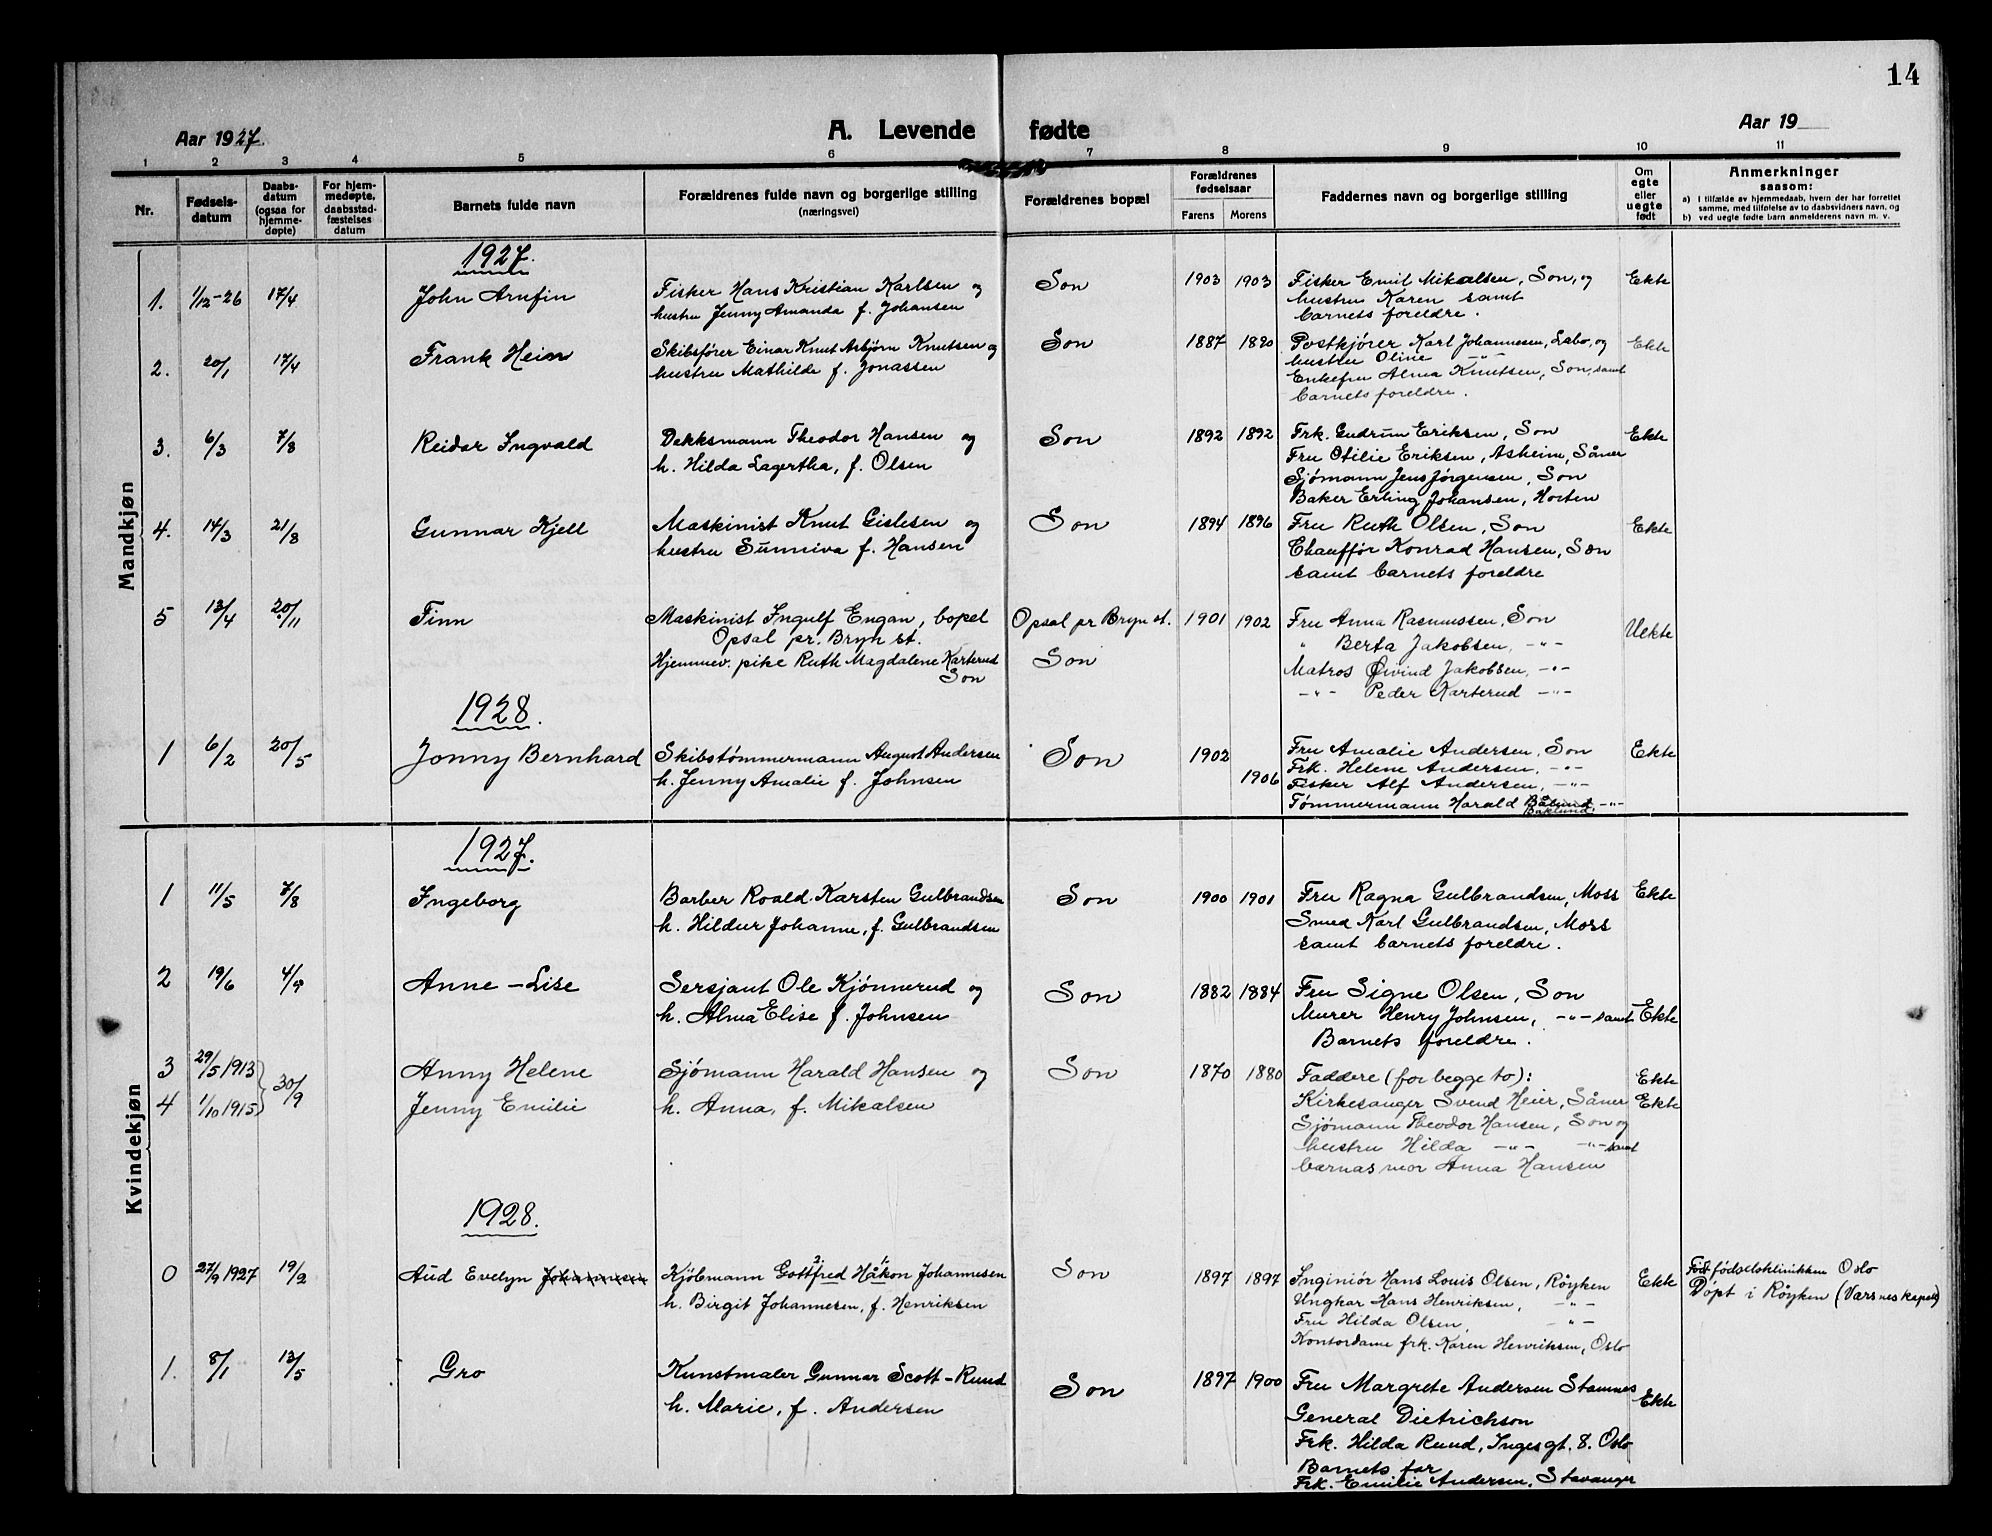 14
Aar 1927.
A. Levende fødte
Aar 19
1 2 3 4 5 6 7 8 9 10 11
Nr.
Fødsels-
datum
Daabs-
datum
(ogsaa for
hjemme-
døpte)
For hjem-
medøpte,
daabsstad-
fæstelses
datum
Barnets fulde navn
Forældrenes fulde navn og borgerlige stilling
(næringsvei)
Forældrenes bopæl
Forældrenes
fødselsaar
Farens Morens
Faddernes navn og borgerlige stilling
Om
egte
eller
uegte
født
Anmerkninger
saasom:
a) I tilfælde av hjemmedaab, hvem der har forrettet
samme, med tilføielse av to daabsvidners navn, og
b) ved uegte fødte barn anmelderens navn m. v.
Mandkjøn
1927.
1. 1/12-26 17/4 John Arnfin
Fisker Hans Kristian Karlsen og
hustru Jenny Amanda f. Johansen
Son 1903 1903
Fisker Emil Mikalsen, Son, og
hustru Karen samt
barnets foreldre.
Ekte
2. 20/1 17/4 Frank Hein
Skibsfører Einar Knut Asbjørn Knutsen og
hustru Mathilde f. Jonassen
Son 1887 1890
Postkjører Karl Johannesen, Labo, og
hustru Oline -"-
Enkefru Alma Knutsen, Son, samt
barnets foreldre.
Ekte
3. 6/3 7/8 Reidar Ingvald
Dekksmann Theodor Hansen og
h. Hilda Lagertha, f. Olsen
Son 1892 1892
Frk. Gudrun Eriksen, Son
Fru Otilie Eriksen, Asheim, Såner
Sjømann Jens Jørgensen, Son
Baker Erling Johansen, Horten
Ekte
4. 14/3 21/8 Gunnar Kjell
Maskinist Knut Gislesen og
hustru Sunniva f. Hansen
Son 1894 1896
Fru Ruth Olsen, Son
Chauffør Konrad Hansen, Son
samt barnets foreldre
Ekte
5 13/4 20/11 Finn
Maskinist Ingulf Engan, bopel
Opsal pr. Bryn st.
Hjemmev. pike Ruth Magdalene Karterud
Son
Opsal pr Bryn st.
Son
1901 1902
Fru Anna Rasmussen, Son
" Berta Jakobsen, -"-
Matros Øivind Jakobsen, -"-
-"- Peder Karterud -"-
Uekte
1928.
1 6/2 20/5 Jonny Bernhard
Skibstømmermann August Andersen
h. Jenny Amalie f. Johnsen
Son 1902 1906
Fru Amalie Andersen, Son
Frk. Helene Andersen, -"-
Fisker Alf Andersen, -"-
Tømmermann Harald Bålund -"-
Baklund
Ekte
Kvindekjøn
1927.
1 11/5 7/8 Ingeborg
Barber Roald Karsten Gulbrandsen
h. Hildur Johanne, f. Gulbrandsen
Son 1900 1901
Fru Ragna Gulbrandsen, Moss
Smed Karl Gulbrandsen, Moss
samt barnets foreldre.
Ekte
2 19/6 4/9 Anne-Lise
Sersjant Ole Kjønnerud og
h. Alma Elise f. Johnsen
Son 1882 1884
Fru Signe Olsen, Son
Murer Henry Johnsen, -"- samt
Barnets foreldre.
Ekte
3 29/5 1913 Anny Helene
4 1/10 1915 30/9 Jenny Emilie
Sjømann Harald Hansen og
h. Anna, f. Mikalsen
Son 1870 1880
Faddere (for begge to):
Kirkesanger Svend Heier, Såner
Sjømann Theodor Hansen, Son og
hustru Hilda -"- -"- samt
barnas mor Anna Hansen
Ekte
Ekte
1928.
0 27/9 1927 19/2 Aud Evelyn Johannesen
Kjøbmann Gottfred Håkon Johannesen
2. 1.
h. Birgit Johannesen, f. Henriksen
Son 1897 1897
Inginiør Hans Louis Olsen, Røyken
Ungkar Hans Henriksen, -"-
Fru Hilda Olsen, -"-
Kontordame frk. Karen Henriksen, Oslo
Ekte
Født fødselsklinikken Oslo
Døpt i Røyken (Værnes kapell)
1. 8/1 13/5 Gro
Kunstmaler Gunnar Scott-Ruud
h. Marie, f. Andersen
Son 1897 1900
Fru Margrete Andersen Stamnes
General Dietrichson
Frk. Hilda Ruud, Inges gt. 8. Oslo
Barnets far
Frk. Emilie Andersen, Stavanger
Ekte